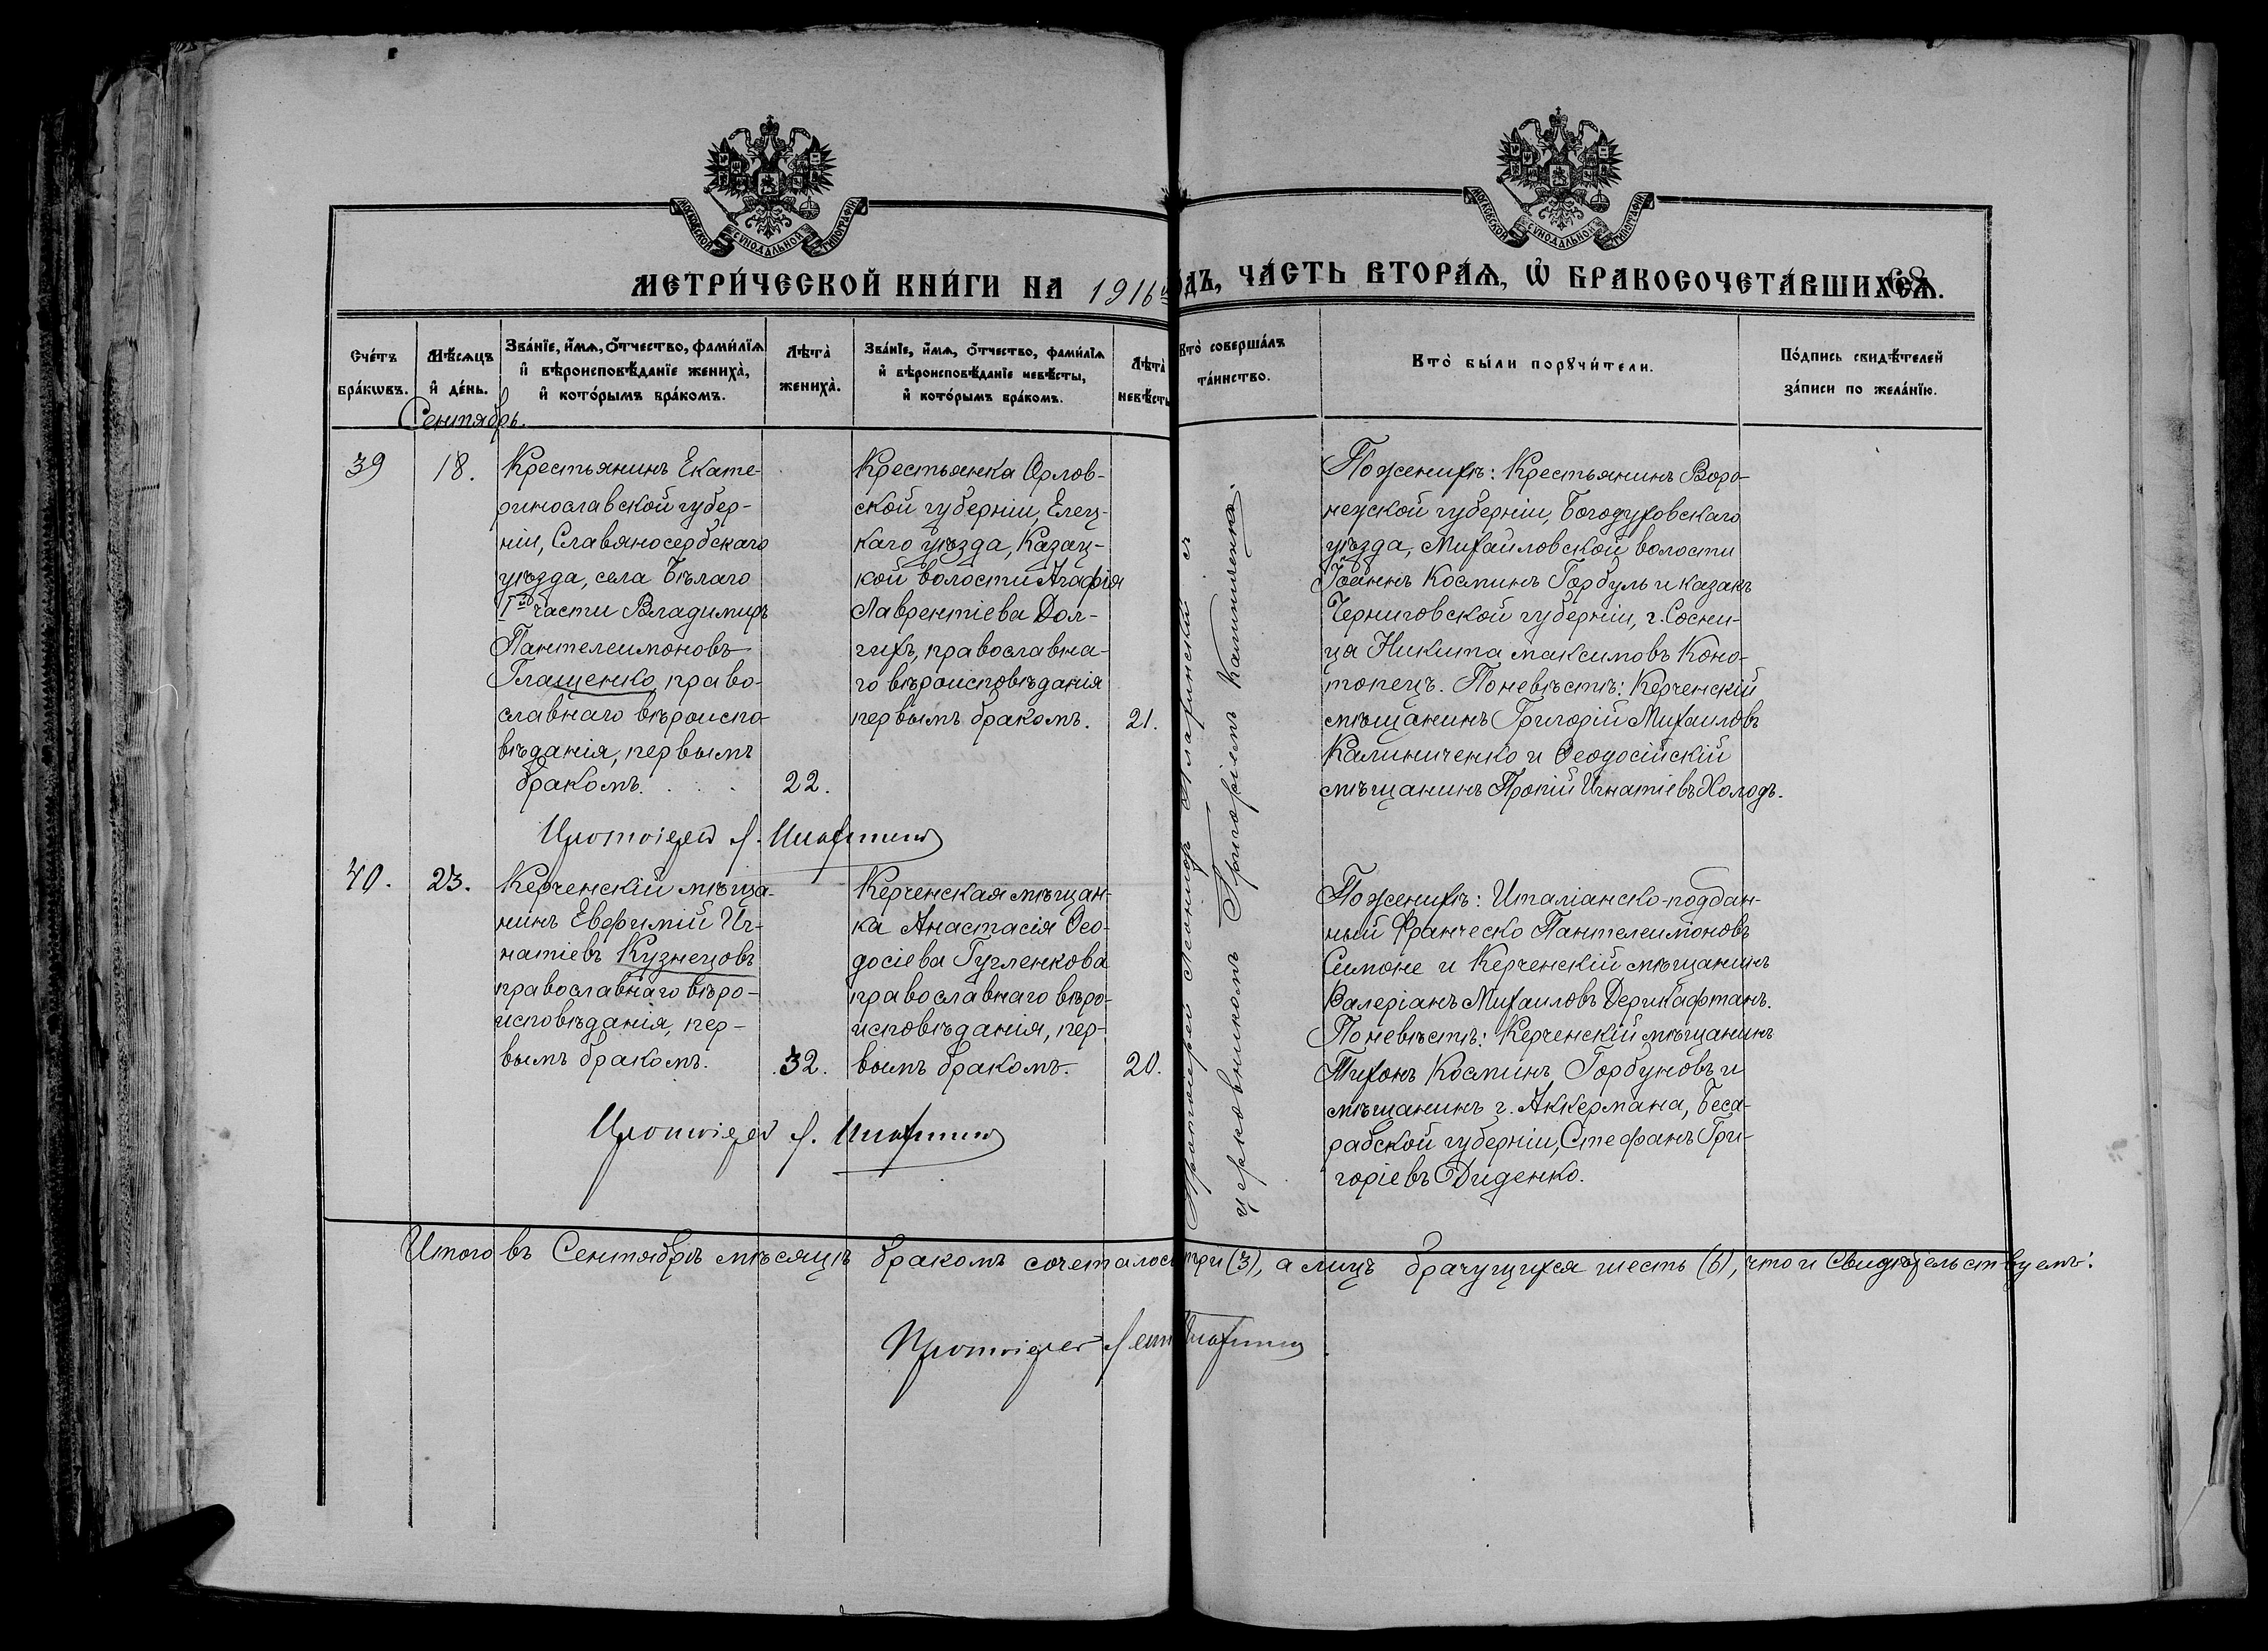 МОСКОВСКОЙ СѴНОДАЛЬНОЙ ТИПОГРАФІИ
МОСКОВСКОЙ СѴНОДАЛЬНОЙ ТИПОГРАФІИ
МЕТРИ́ЧЕСКОЙ КНИ́ГИ НА 1916й
ДЪ, ЧА́СТЬ ВТОРА́Ѧ, Ѡ҆ БРАКОСОЧЕТА́ВШИХСѦ.
68
Сче́тъ бра́кѡвъ.
Мѣ́сяцъ и҆ де́нь.
Зва́нїе, и҆́мѧ, ѻ҆́тчество, фами́лїѧ и҆ вѣроисповѣ́данїе жениха̀, и҆ кото́рымъ бра́комъ.
Лѣта̀ жениха̀.
Зва́нїе, и҆́мѧ, ѻ҆́тчество, фами́лїѧ и҆ вѣроисповѣ́данїе невѣ́сты, и҆ кото́рымъ бра́комъ.
Лѣта̀ невѣ́сты
Кто̀ соверша́лъ та́инство.
Кто̀ бы́ли порꙋчи́тели.
По́дпись свидѣ́телей за́писи по жела́нїю.
Сентябрь.
39
18.
Крестьянинъ Екате-
ринославской губер-
ніи, Славяносербскаго
уѣзда, села Бѣлаго
1ой части Владимиръ
Пантелеимоновъ
Глащенко, право-
славнаго вѣроиспо-
вѣданія, первымъ
бракомъ.
22.
Крестьянка Орлов-
ской губерніи, Елец-
каго уѣзда, Казац-
кой волости Агафія
Лаврентіева Дол-
гихъ, православна-
го вѣроисповѣданія
первымъ бракомъ.
21.
Протоіерей Леонидъ
церковникомъ Григоріемъ
По женихѣ: Крестьянинъ Воро-
нежской губерніи, Богодуховскаго
уѣзда, Михайловской волости
Іоаннъ Косминъ Горбуль и казакъ
Черниговской губерніи, г. Сосни-
ца Никита Максимовъ Коно-
топецъ. По невѣстѣ: Керченскій
мѣщанинъ Григорій Михаиловъ
Калиниченко и Ѳеодосійскій
мѣщанинъ Игнатіевъ Холодъ.
Протоіерей Л.
40.
23.
Керченскій мѣща-
нинъ Евфимій Иг-
натіевъ Кузнецовъ
православнаго вѣро-
исповѣданія, пер-
вымъ бракомъ.
32.
Керченская мѣщан-
ка Анастасія Ѳео-
досіева Гугленкова
православнаго вѣро-
исповѣданія, пер-
вымъ бракомъ.
20.
По женихѣ: Италіанско-поддан-
ный Франческо Пантелеимоновъ
Симоне и Керченскій мѣщанинъ
Валеріанъ Михаиловъ Дерикафтанъ.
По невѣстѣ: Керченскій мѣщанинъ
Тихонъ Косминъ Горбуновъ и
мѣщанинъ г. Аккермана, Беса-
рабской губерніи, Стефанъ Гри-
горіевъ Диденко.
Протоіерей Л.
Итого въ Сентябрѣ мѣсяцѣ бракомъ сочеталось три (3), а лицъ брачущихся шесть (6), что и свидѣтельствуемъ:
Протоіерей